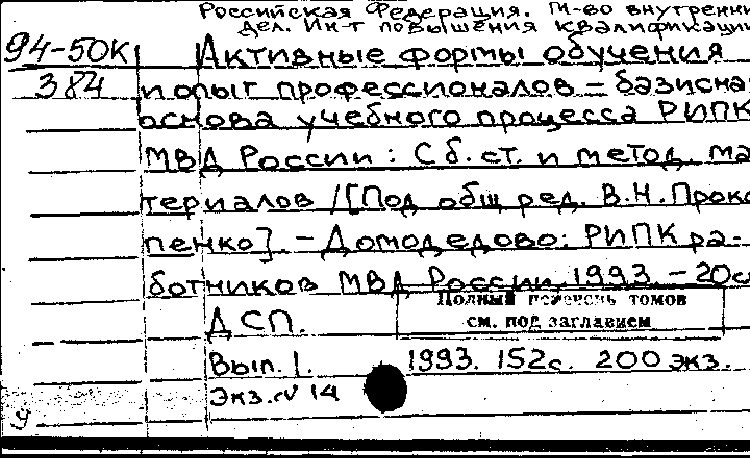 Российская Федерация. М-во внутренни
дел. Ин-т повышения квалификации
94-50К Активные формы обучения
384 и опыт профессионалов - базисна
основа учебного процесса РИПК
МВД России: Сб. ст. и метод. ма
териалов / [Под общ ред. В.Н. Проко
пенко]. - Домодедово: РИПК ра-
ботников МВД России, 1993. - 20с
Полный перечень томов
см. под заглавием
ДСП.
Вып. 1. 1993. 152с. 200 экз.
Экз. N 14
у